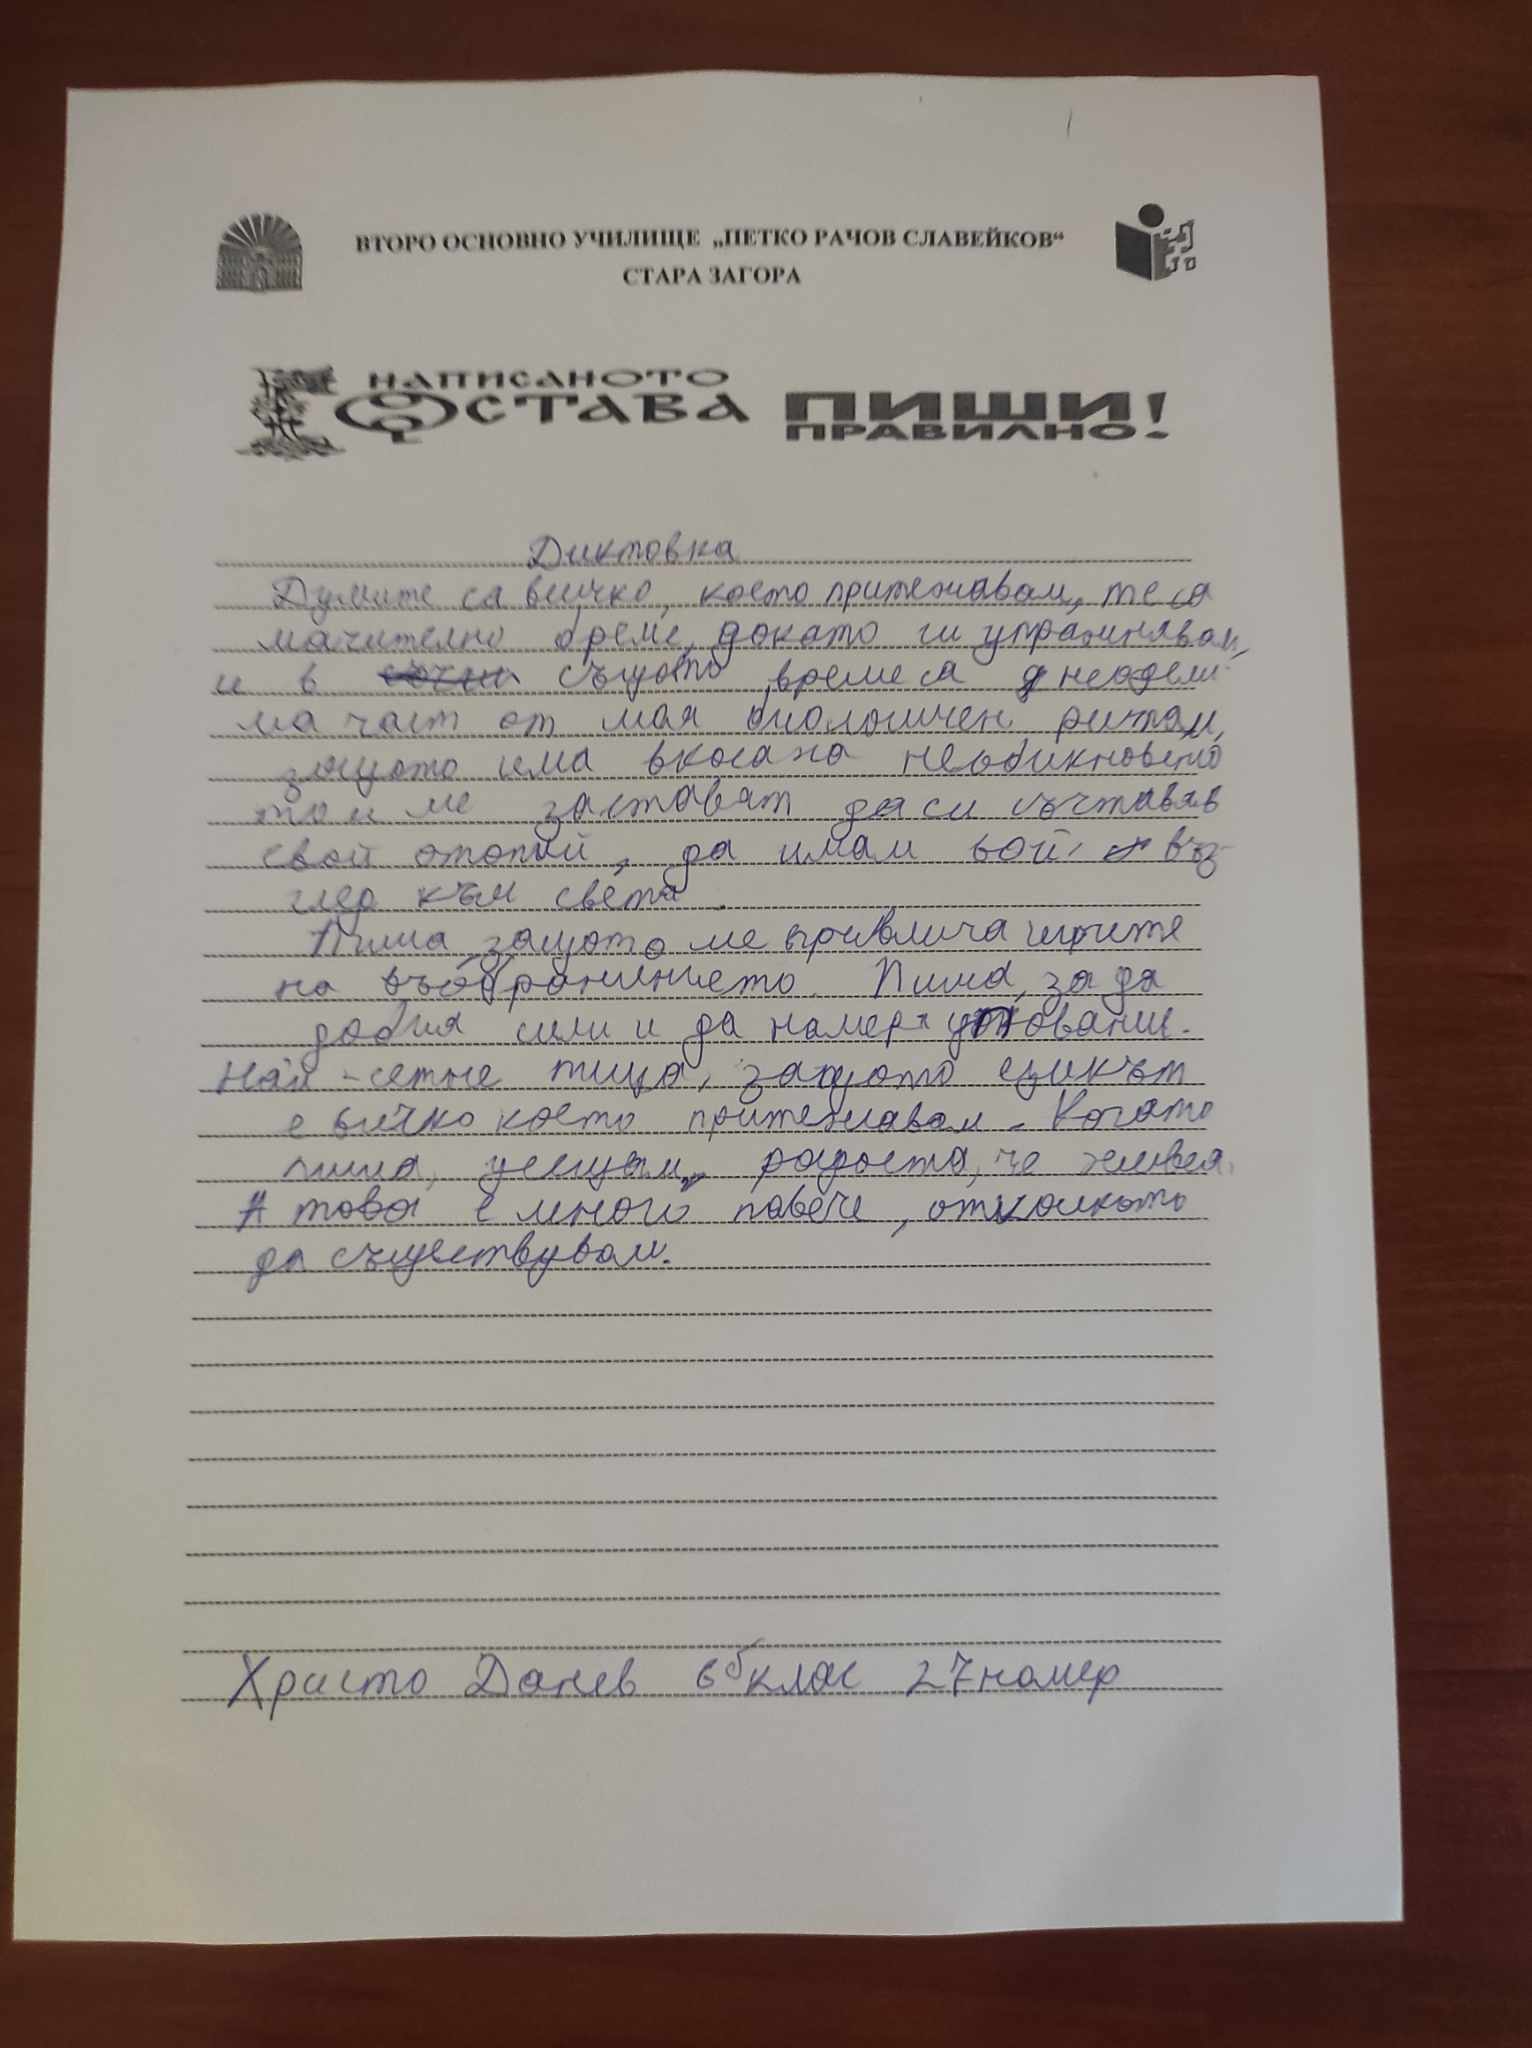 ВТОРО ОСНОВНО УЧИЛИЩЕ „ПЕТКО РАЧОВ СЛАВЕЙКОВ“
СТАРА ЗАГОРА
НАПИСАНОТО
ОСТАВА
ПИШИ
ПРАВИЛНО!
Диктовка
Думите са всичко, което притежавам, те са
мъчително бреме, докато ги упражнявам,
и в същото време са неодели-
ма част от моя биологичен ритъм,
защото има в кода на необикновено
то и ме заставят да си съчтавяв
свой, да имам въз-
глед към света.
Пиша, защото ме привлича игрите
на въображението. Пиша, за да
добия сили и да намеря упование.
Най-сетне пиша, защото езикът
е всичко което притежавам. Когато
пиша, усещам радоста, че живея.
А това е много повече, отколкото
да съществувам.
Христо Данев 6б клас 27 номер